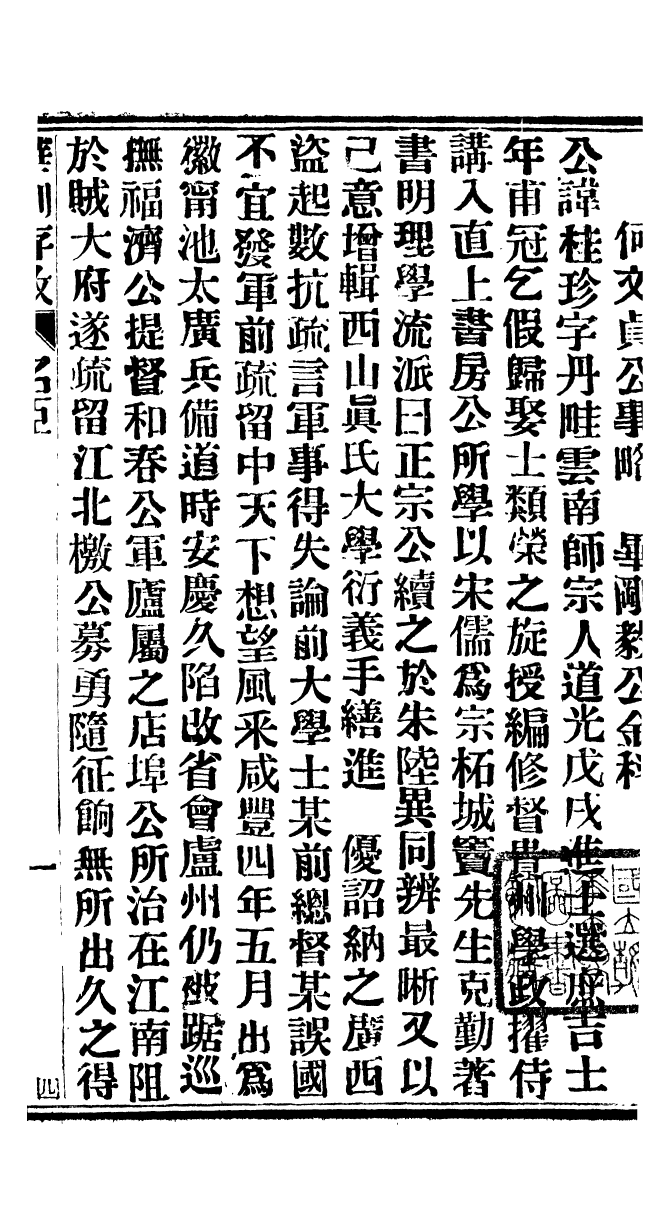 何文貞公事略　畢剛毅公金科
公諱桂珍字丹畦雲南師宗人道光戊戌進士選庶吉士
年甫冠乞假歸娶士類榮之旋授編修督貴州學政擢侍
講入直上書房公所學以宋儒爲宗柘城竇先生克勤著
書明理學流派曰正宗公續之於朱陸異同辨最晰又以
己意增輯西山眞氏大學衍義手繕進　優詔納之廣西
盜起數抗疏言軍事得失論前大學士某前總督某誤國
不宜發軍前疏留中天下想望風采咸豐四年五月出爲
徽甯池太廣兵備道時安慶久陷改省會廬州仍被踞巡
撫福濟公提督和春公軍廬屬之店埠公所治在江南阻
於賊大府遂疏留江北檄公募勇隨征餉無所出久之得
名臣
一
四